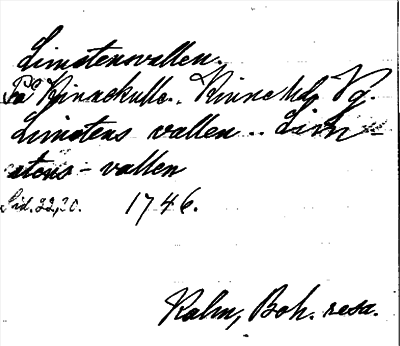 Limstensvallen.
På Kinnekulle. Kinne hd, Vg.
Limstens vallen .. Lim-
stens-vallen
Sid. 22, 30. 1746.
Kalm, Boh. resa.